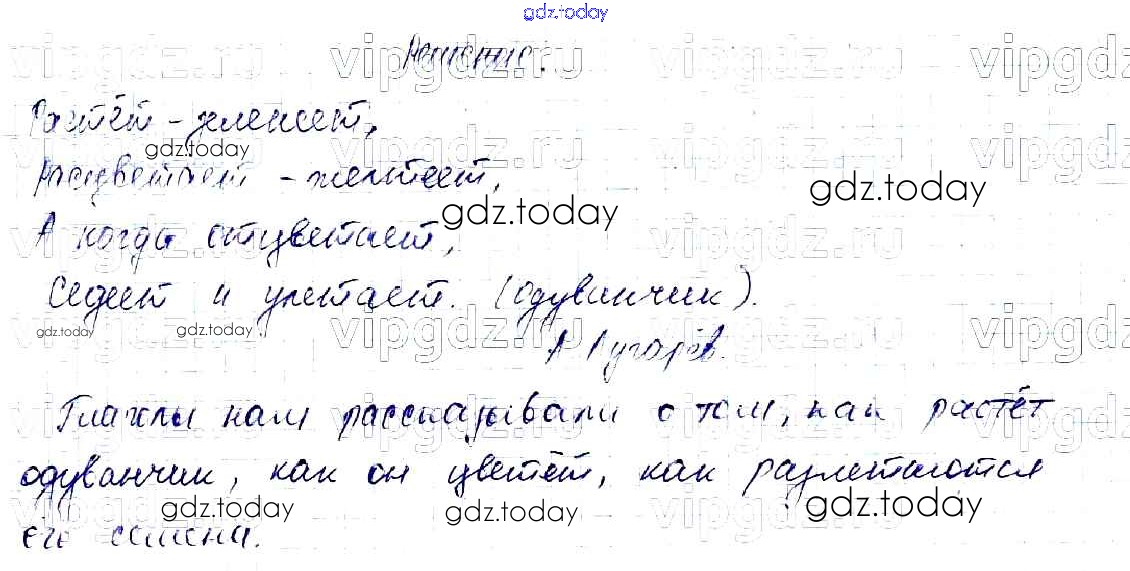 gdz.today
Решение.
Растёт - зеленеет,
gdz.today
Расцветает - желтеет,
gdz.today gdz.today
А когда отцветает,
Седеет и улетает. (одуванчик).
gdz.today gdz.today
А. Лугарёв.
Глаголы нам рассказывали о том, как растёт
одуванчик, как он цветёт, как разлетаются
gdz.today gdz.today gdz.today
его семена.
vipgdz.ru vipgdz.ru vipgdz.ru vipgdz.ru